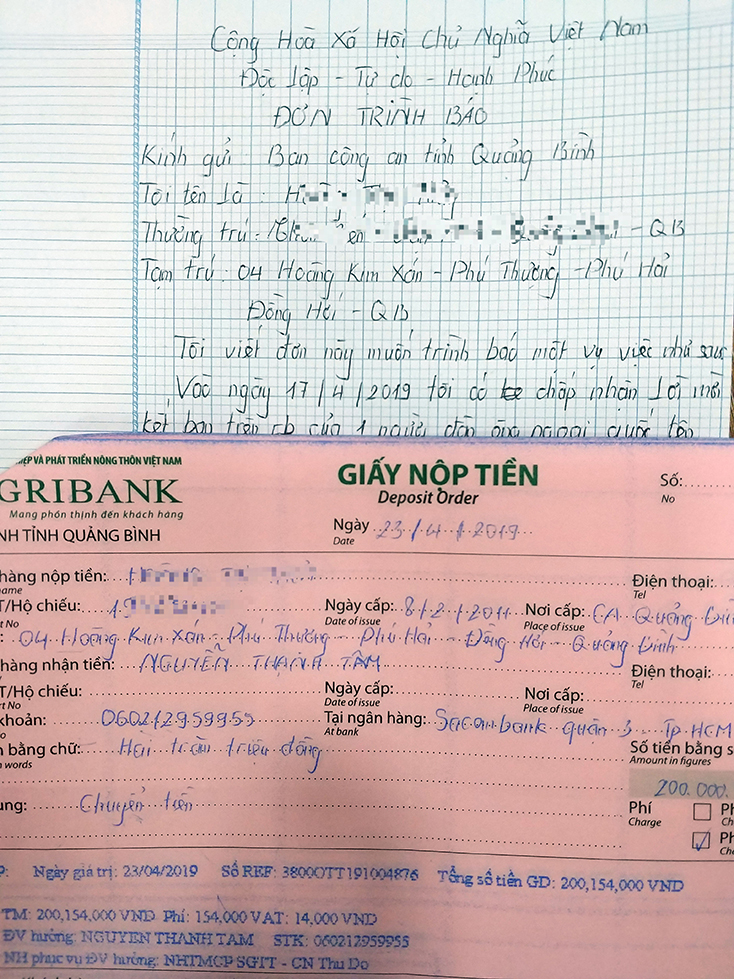 Cộng Hoà Xã Hội Chủ Nghĩa Việt Nam
Độc lập - Tự do - Hạnh Phúc
ĐƠN TRÌNH BÁO
Kính gửi Ban công an tỉnh Quảng Bình
Tôi tên là :
Thường trú : - QB
Tạm trú : 04 Hoàng Kim Xán - Phú Thượng - Phú Hải
Đồng Hới - QB
Tôi viết đơn này muốn trình báo một vụ việc như sau
Vào ngày 17/4/2019 tôi có chấp nhận lời mời
kết bạn trên fb của 1 người đàn ông ngoại quốc tên
IỆP VÀ PHÁT TRIỂN NÔNG THÔN VIỆT NAM
GRIBANK
Mang phồn thịnh đến khách hàng
NH TỈNH QUẢNG BÌNH
GIẤY NỘP TIỀN
Deposit Order
Số:
No
Ngày 23/4/2019
Date
hàng nộp tiền:
name
Điện thoại:
Tel
T/Hộ chiếu: 19
rt No
Ngày cấp: 8/2/2011
Date of issue
Nơi cấp: CA Quảng Bìn
Place of issue
04 Hoàng Kim Xán - Phú Thượng - Phú Hải - Đồng Hới - Quảng Bình
hàng nhận tiền: NGUYỄN THANH TÂM
Điện thoại:
Tel
T/Hộ chiếu:
rt No
Ngày cấp:
Date of issue
Nơi cấp:
Place of issue
khoản: 060212959955
Tại ngân hàng: Sacombank quận 3 - Tp HCM
At bank
n bằng chữ: Hai trăm triệu đồng
n words
Số tiền bằng s
Amount in figures
200.000.
ung: Chuyển tiền
Phí
Charge
Ph
Ch
Ph
Ch
Ngày giá trị: 23/04/2019 Số REF: 3800OTT191004876 Tổng số tiền GD: 200,154,000 VND
TM: 200,154,000 VND Phí: 154,000 VAT: 14,000 VND
ĐV hưởng: NGUYEN THANH TAM STK: 060212959955
NH phục vụ ĐV hưởng: NHTMCP SGTT - CN Thu Do